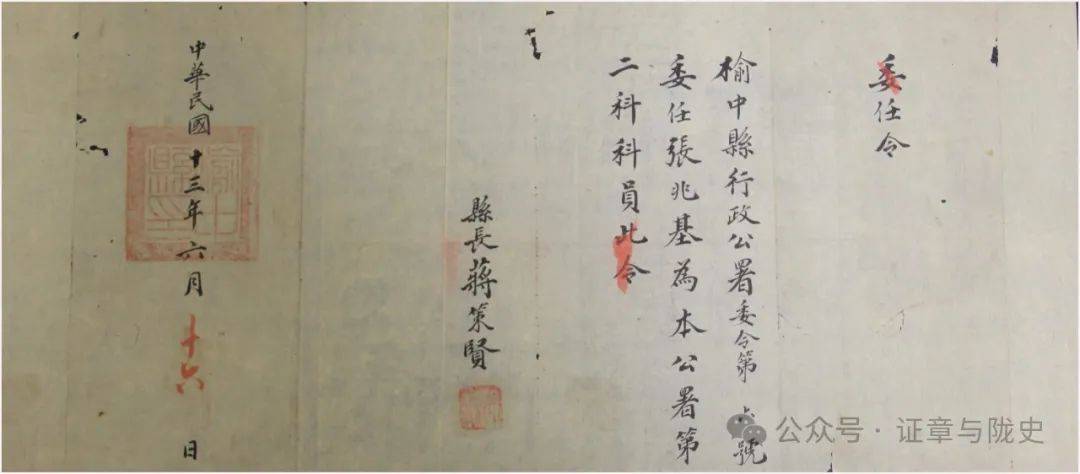 委任令
榆中縣行政公署委令第 號
委任張兆基為本公署第
二科科員此令
縣長蔣策賢
中華民國十三年六月十六日
公众号·证章与陇史